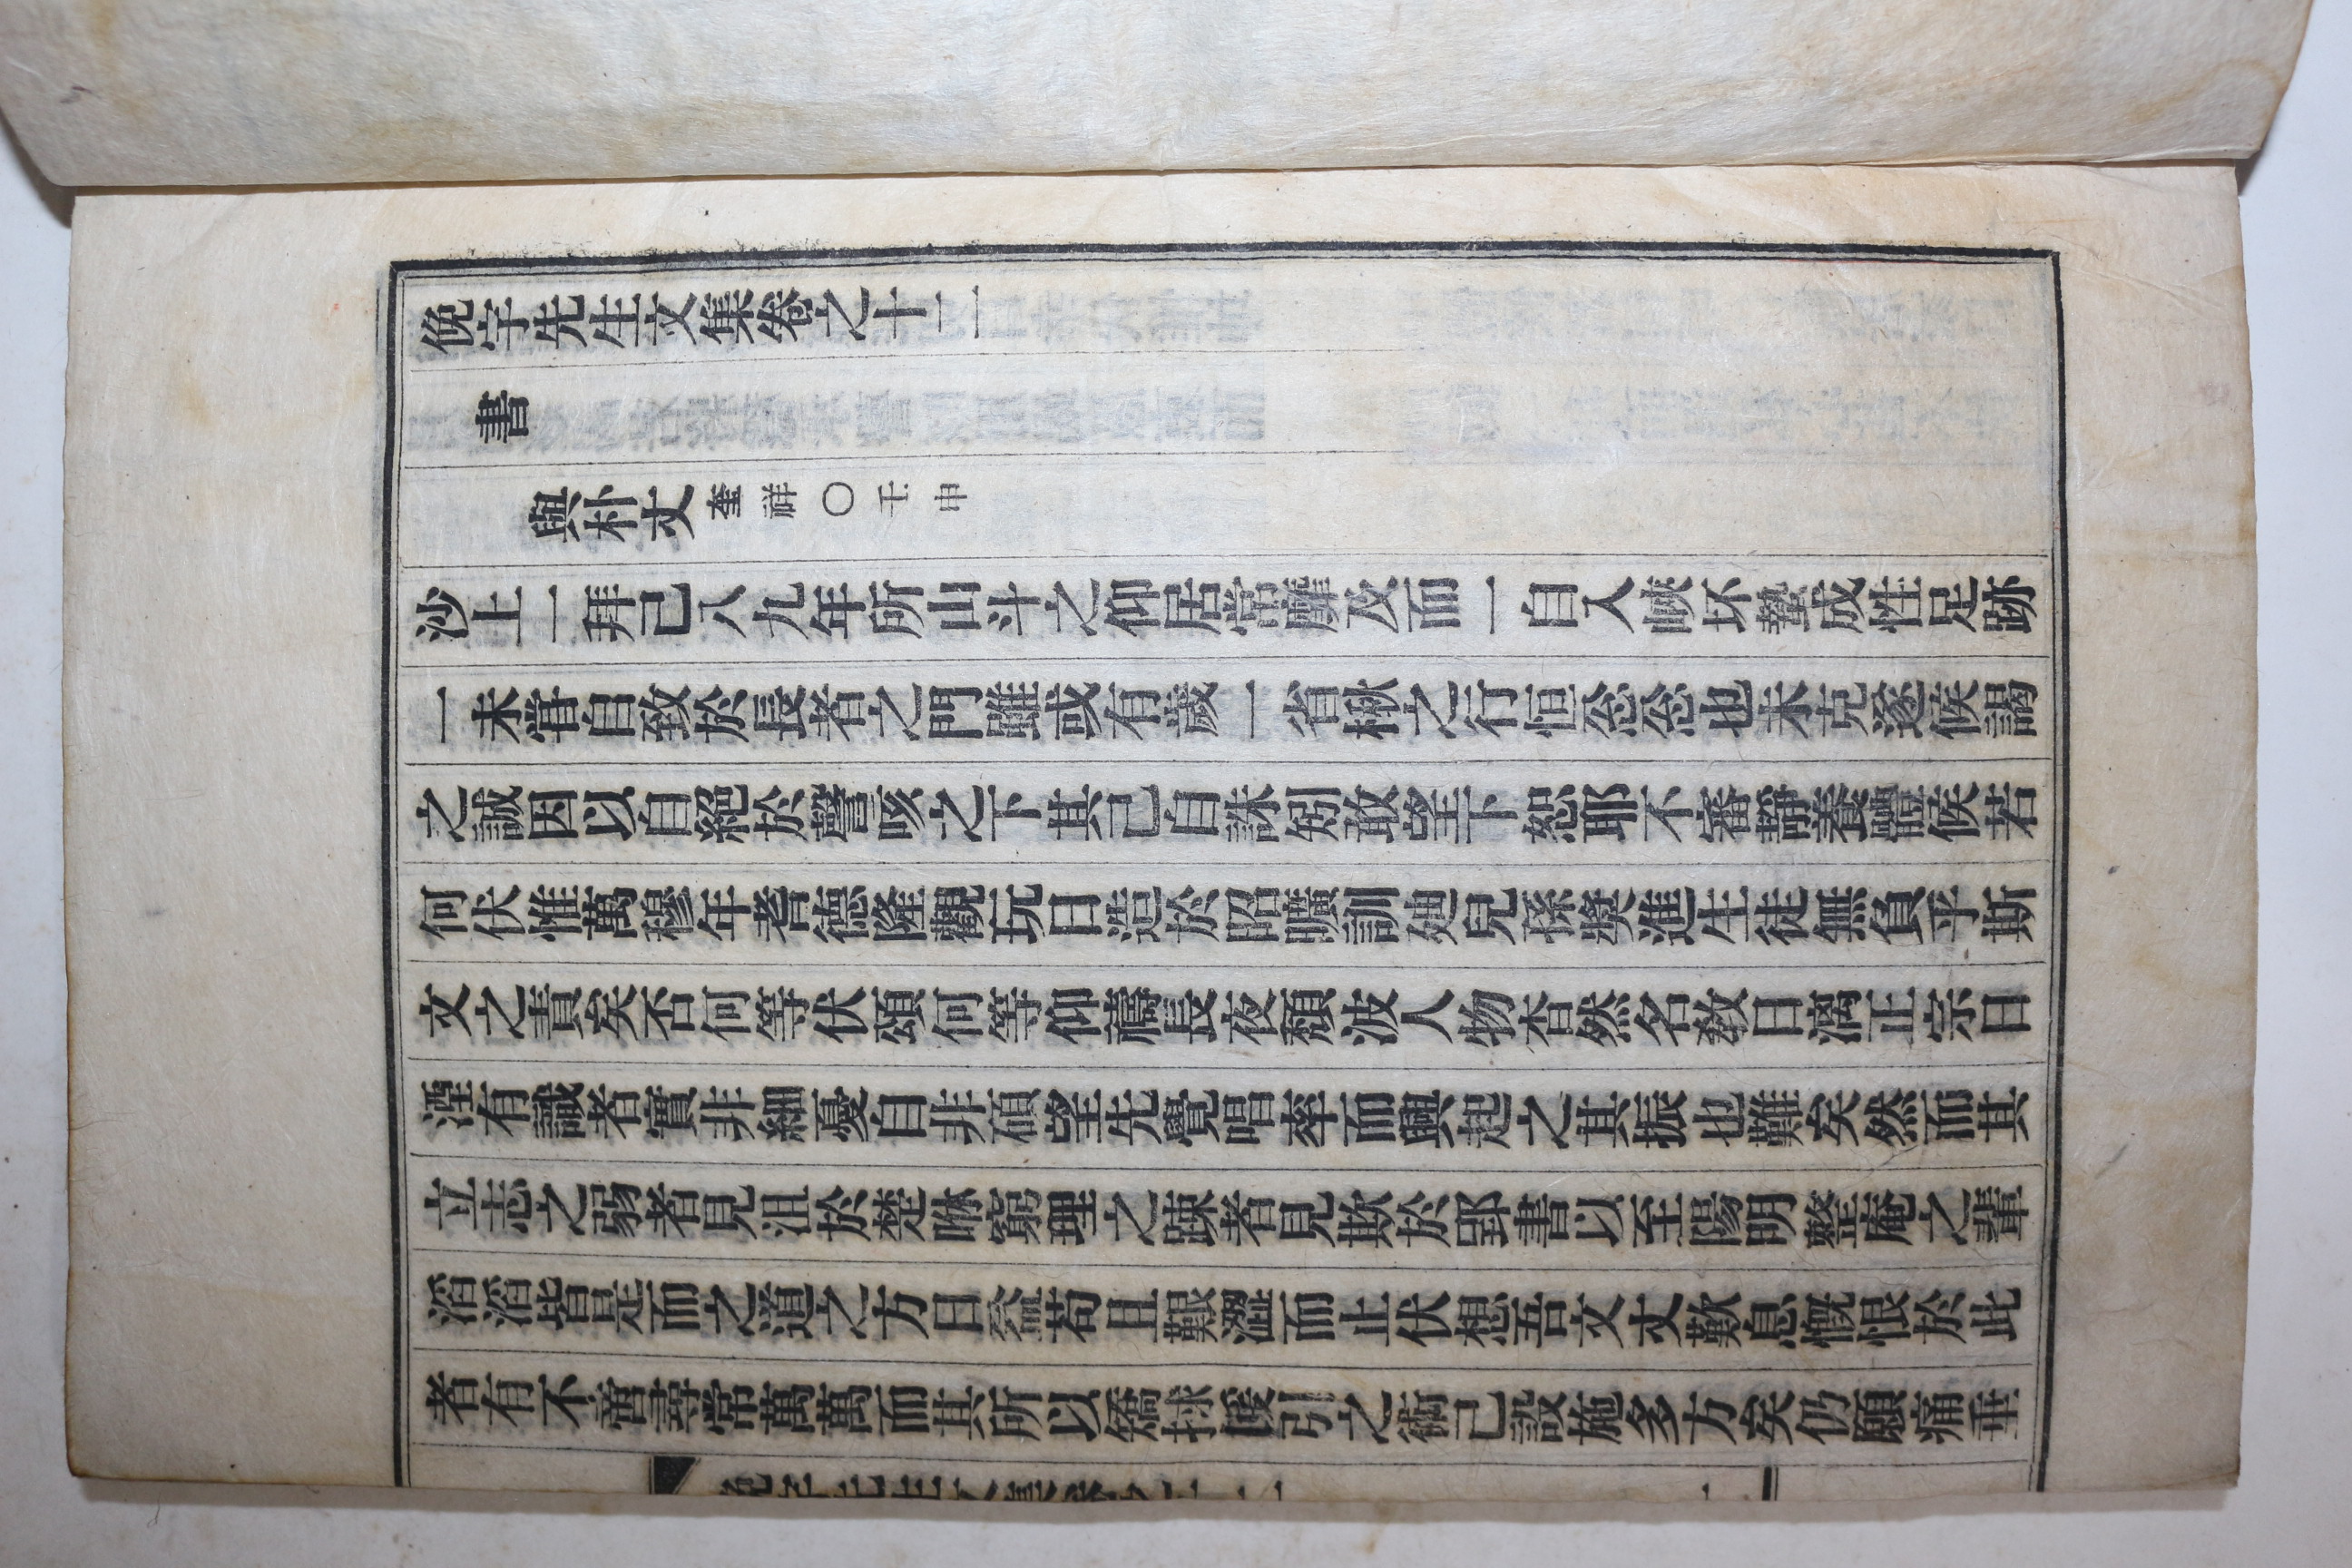 俛宇先生文集卷之十二
書
與朴丈奎祥○壬申
沙上一拜已八九年所山斗之仰居常靡及而一自入峽坏蟄成性足跡
一未甞自致於長者之門雖或有歲一省楸之行恒忩忩也未克遂候謁
之誠因以自絕於謦咳之下其已自誅矧敢望下恕耶不審靜養體候若
何伏惟萬穆年耆德隆觀玩日造於昭曠訓廸兒孫奬進生徒無負乎斯
文之責矣否何等伏頌何等仰禱長夜頹波人物杳然名敎日漓正宗日
湮有識者實非細憂自非碩望先覺唱率而興起之其振也難矣然而其
立志之弱者見沮於楚咻窮理之踈者見欺於郢書以至陽明整庵之輩
滔滔皆是而之道之方日益苟且艱澁而止伏想吾文丈歎息慨恨於此
者有不啻尋常萬萬而其所以矯捄援引之術已設施多方矣仍願痛垂
俛宇先生文集卷之十二
一